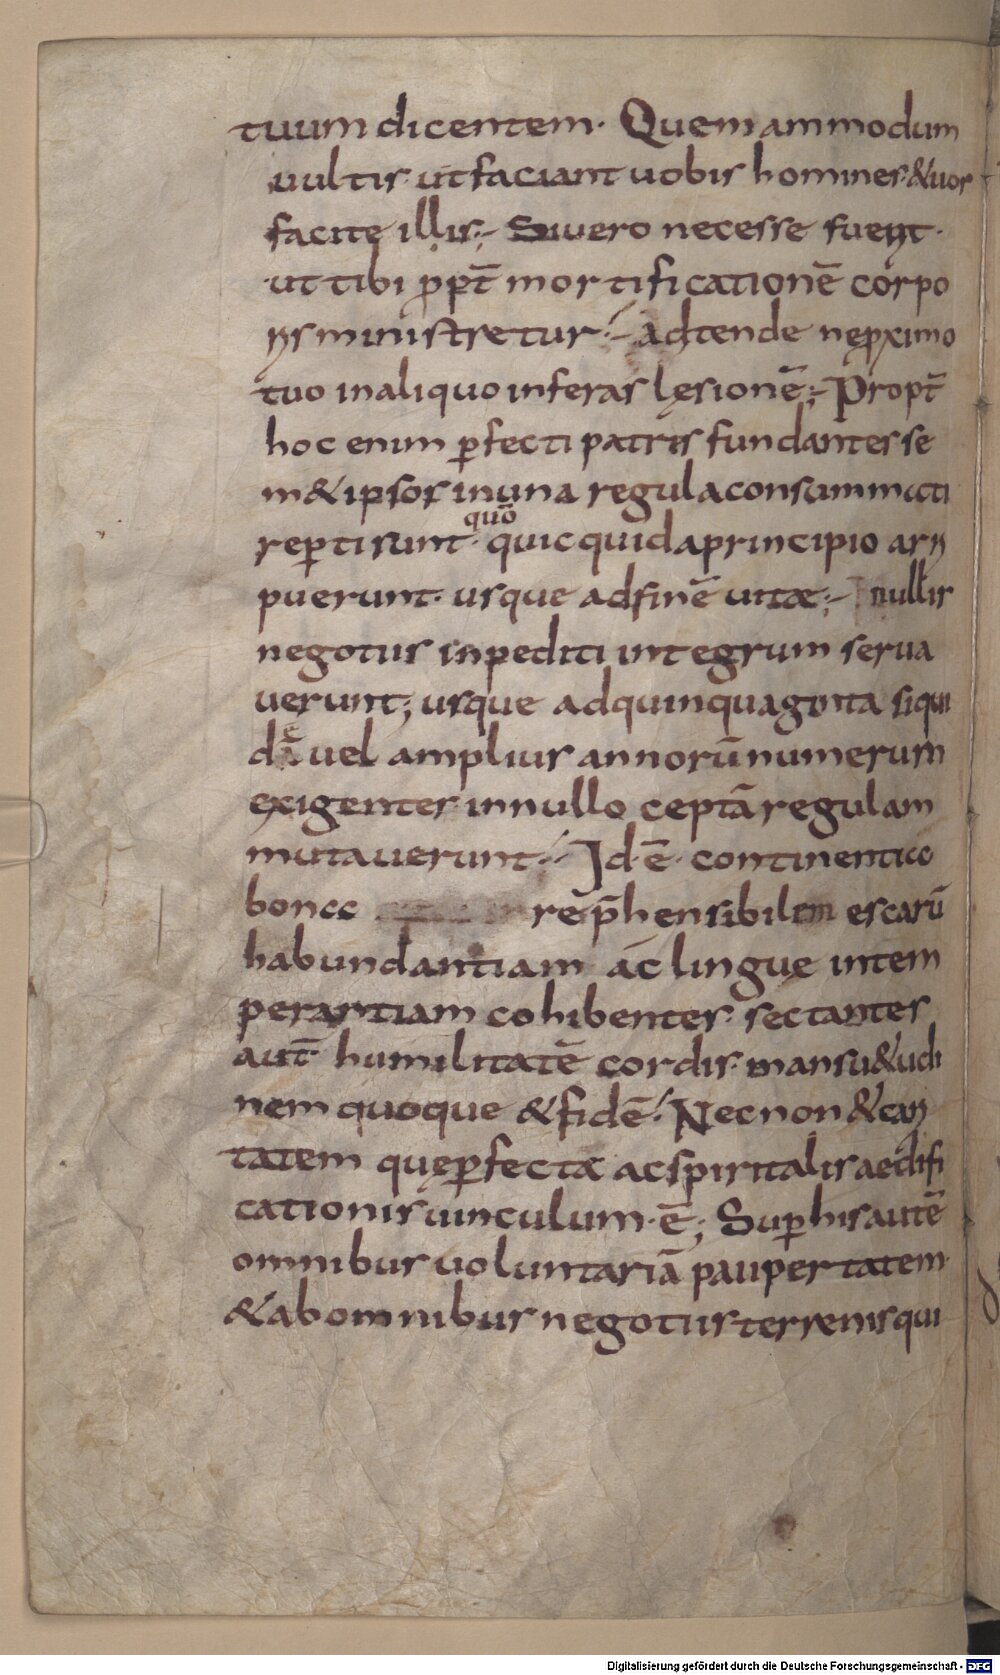 tuum dicentem· Quemammodum
uultis· ut faciant uobis homines· & uos
facite illis;- Si uero necesse fuerit·
ut tibi ꝓpt̄ mortificationē corpo
ris ministretur:- Adtende ne ꝓximo
tuo in aliquo inferas lęsionē;- Propt̄
hoc enim ꝑfecti patris fundantes se
m&ipsos in una regula consummati
reꝑti sunt· quō quicquid a principio ari
puerunt· usque ad finē uitae;- nullis
negotiis inpediti integrum serua
uerunt; usque ad quinquaginta siqui
dē uel amplius annorū numerum
exigentes· in nullo ceptā regulam
mutauerunt:- Id·ē· continentiae
boncc rep̄hensibilem escarū
habundantiam ac lingue intem
perantiam cohibentes· sectantes
aut̄ humilitatē cordis· mansu&udi
nem quoque & fidē:· Necnon & cari
tatem quę ꝑfecta ac spiritalis aedifi
cationis uinculum·ē·; Suꝑ his autē
omnibus uoluntariā paupertatem·
& ab omnibus negotiis terrenis qui
Digitalisierung gefördert durch die Deutsche Forschungsgemeinschaft - DFG